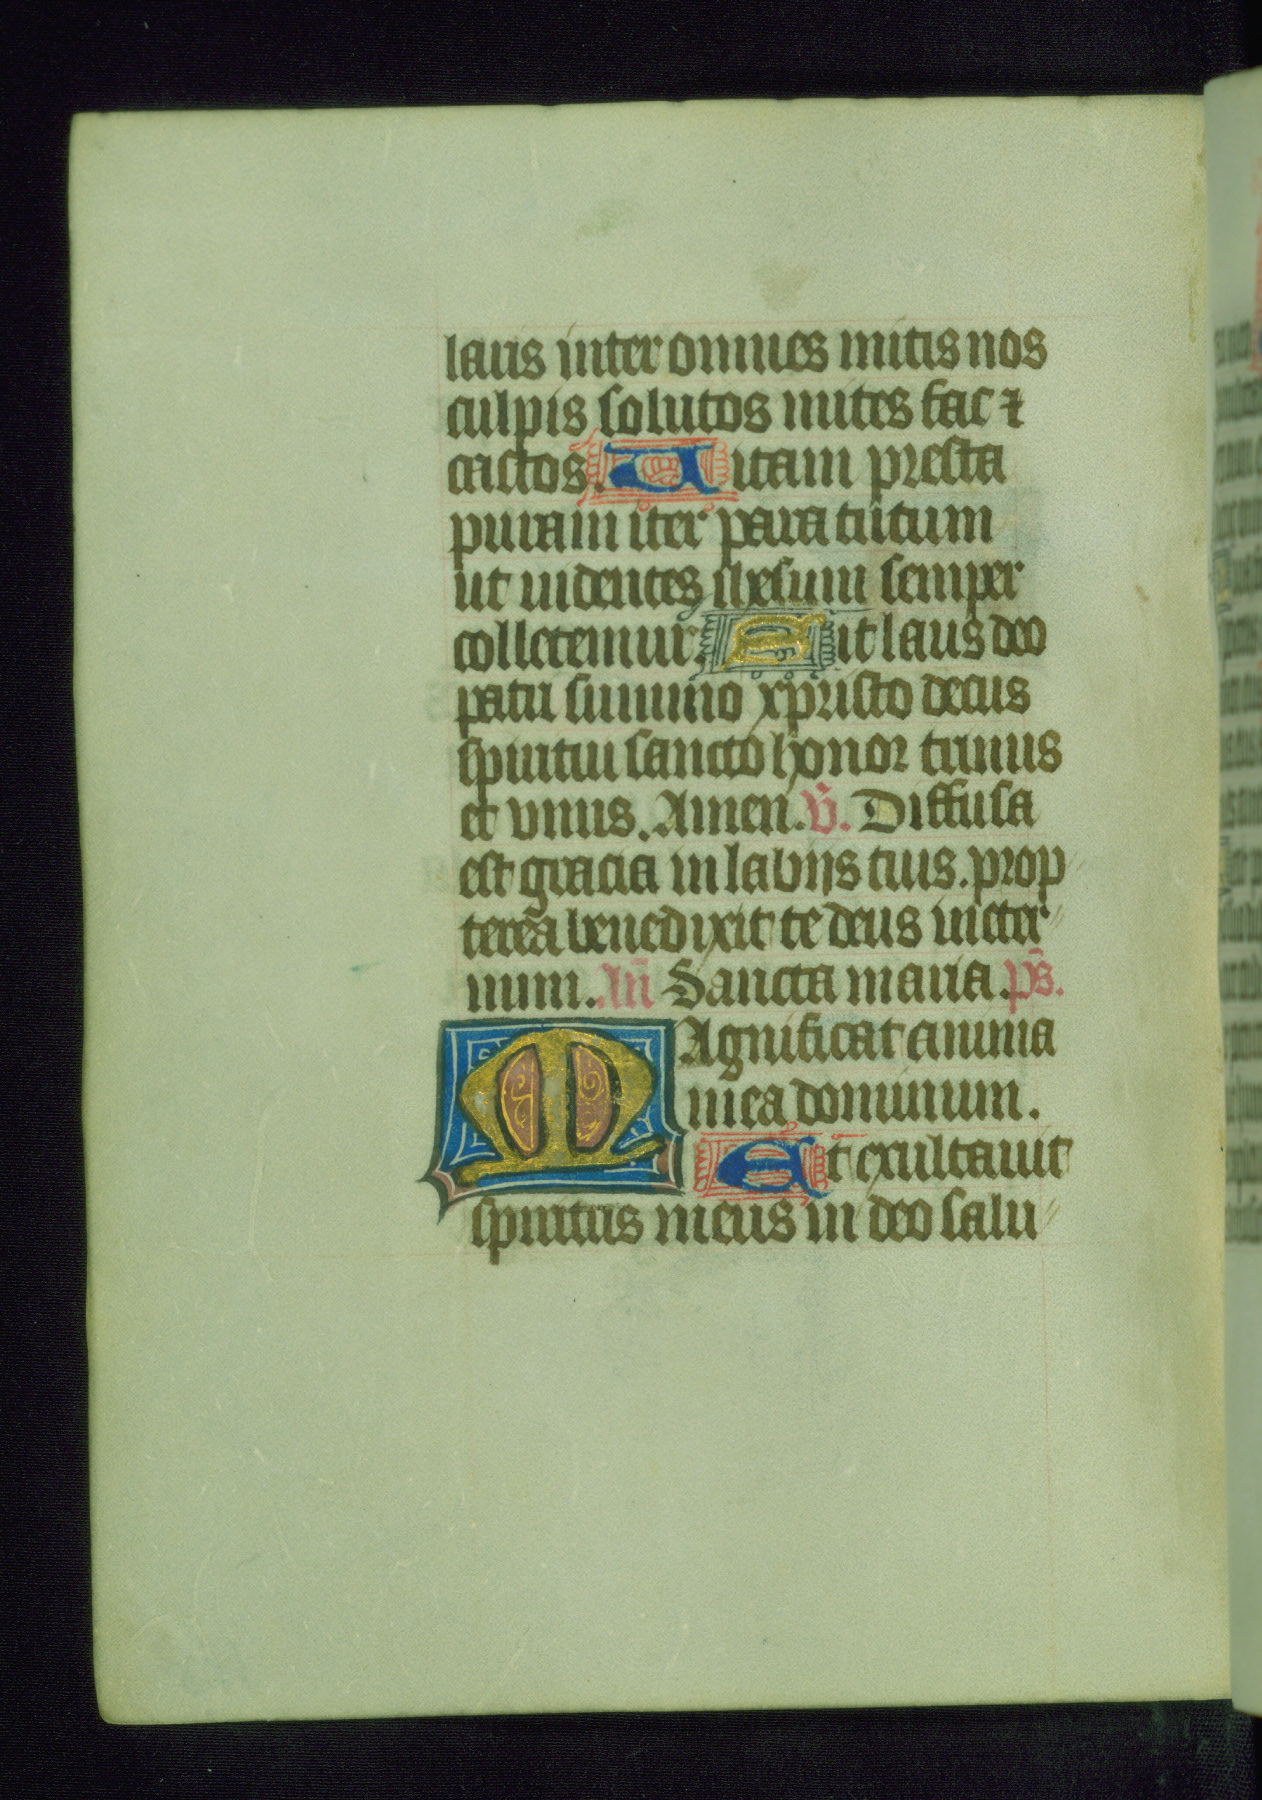 laris inter omnes mitis nos
culpis solutos mites fac ⁊
castos. Uitam presta
puram iter para tutum
ut uidentes ihesum semper
colletemur. Sit laus deo
patri summo xpristo decus
spiritui sancto honor trinus
et vnus. Amen. V̄. Diffusa
est gracia in labijs tuis. prop
terea benedixit te deus in eter
num. An̄ Sancta maria. ps̄.
Magnificat anima
mea dominum.
Et exultauit
spiritus meus in deo salu